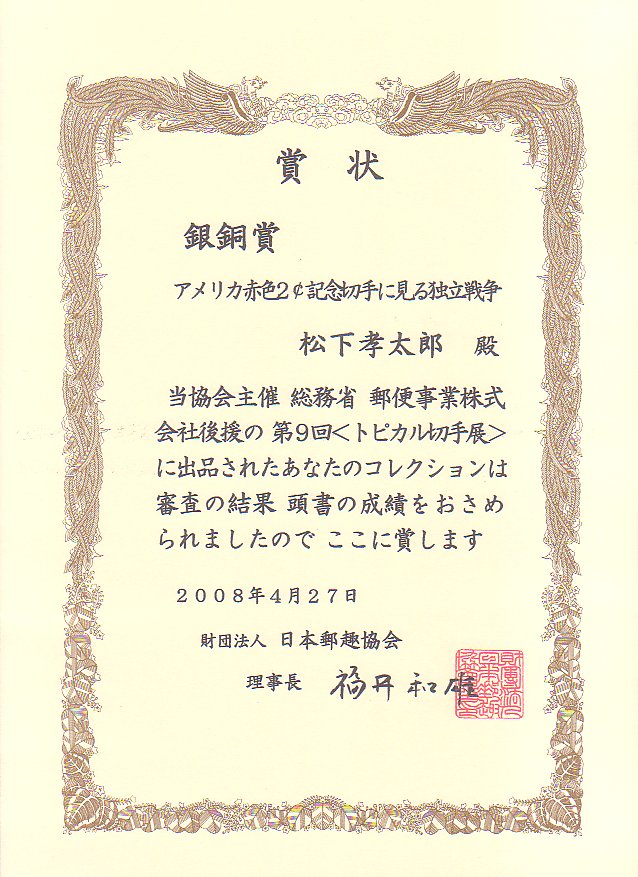 賞状
銀銅賞
アメリカ赤色2¢記念切手に見る独立戦争
松下孝太郎 殿
当協会主催 総務省 郵便事業株式
会社後援の 第9回<トピカル切手展>
に出品されたあなたのコレクションは
審査の結果 頭書の成績をおさめ
られましたので ここに賞します
2008年4月27日
財団法人 日本郵趣協会
理事長 福井和雄